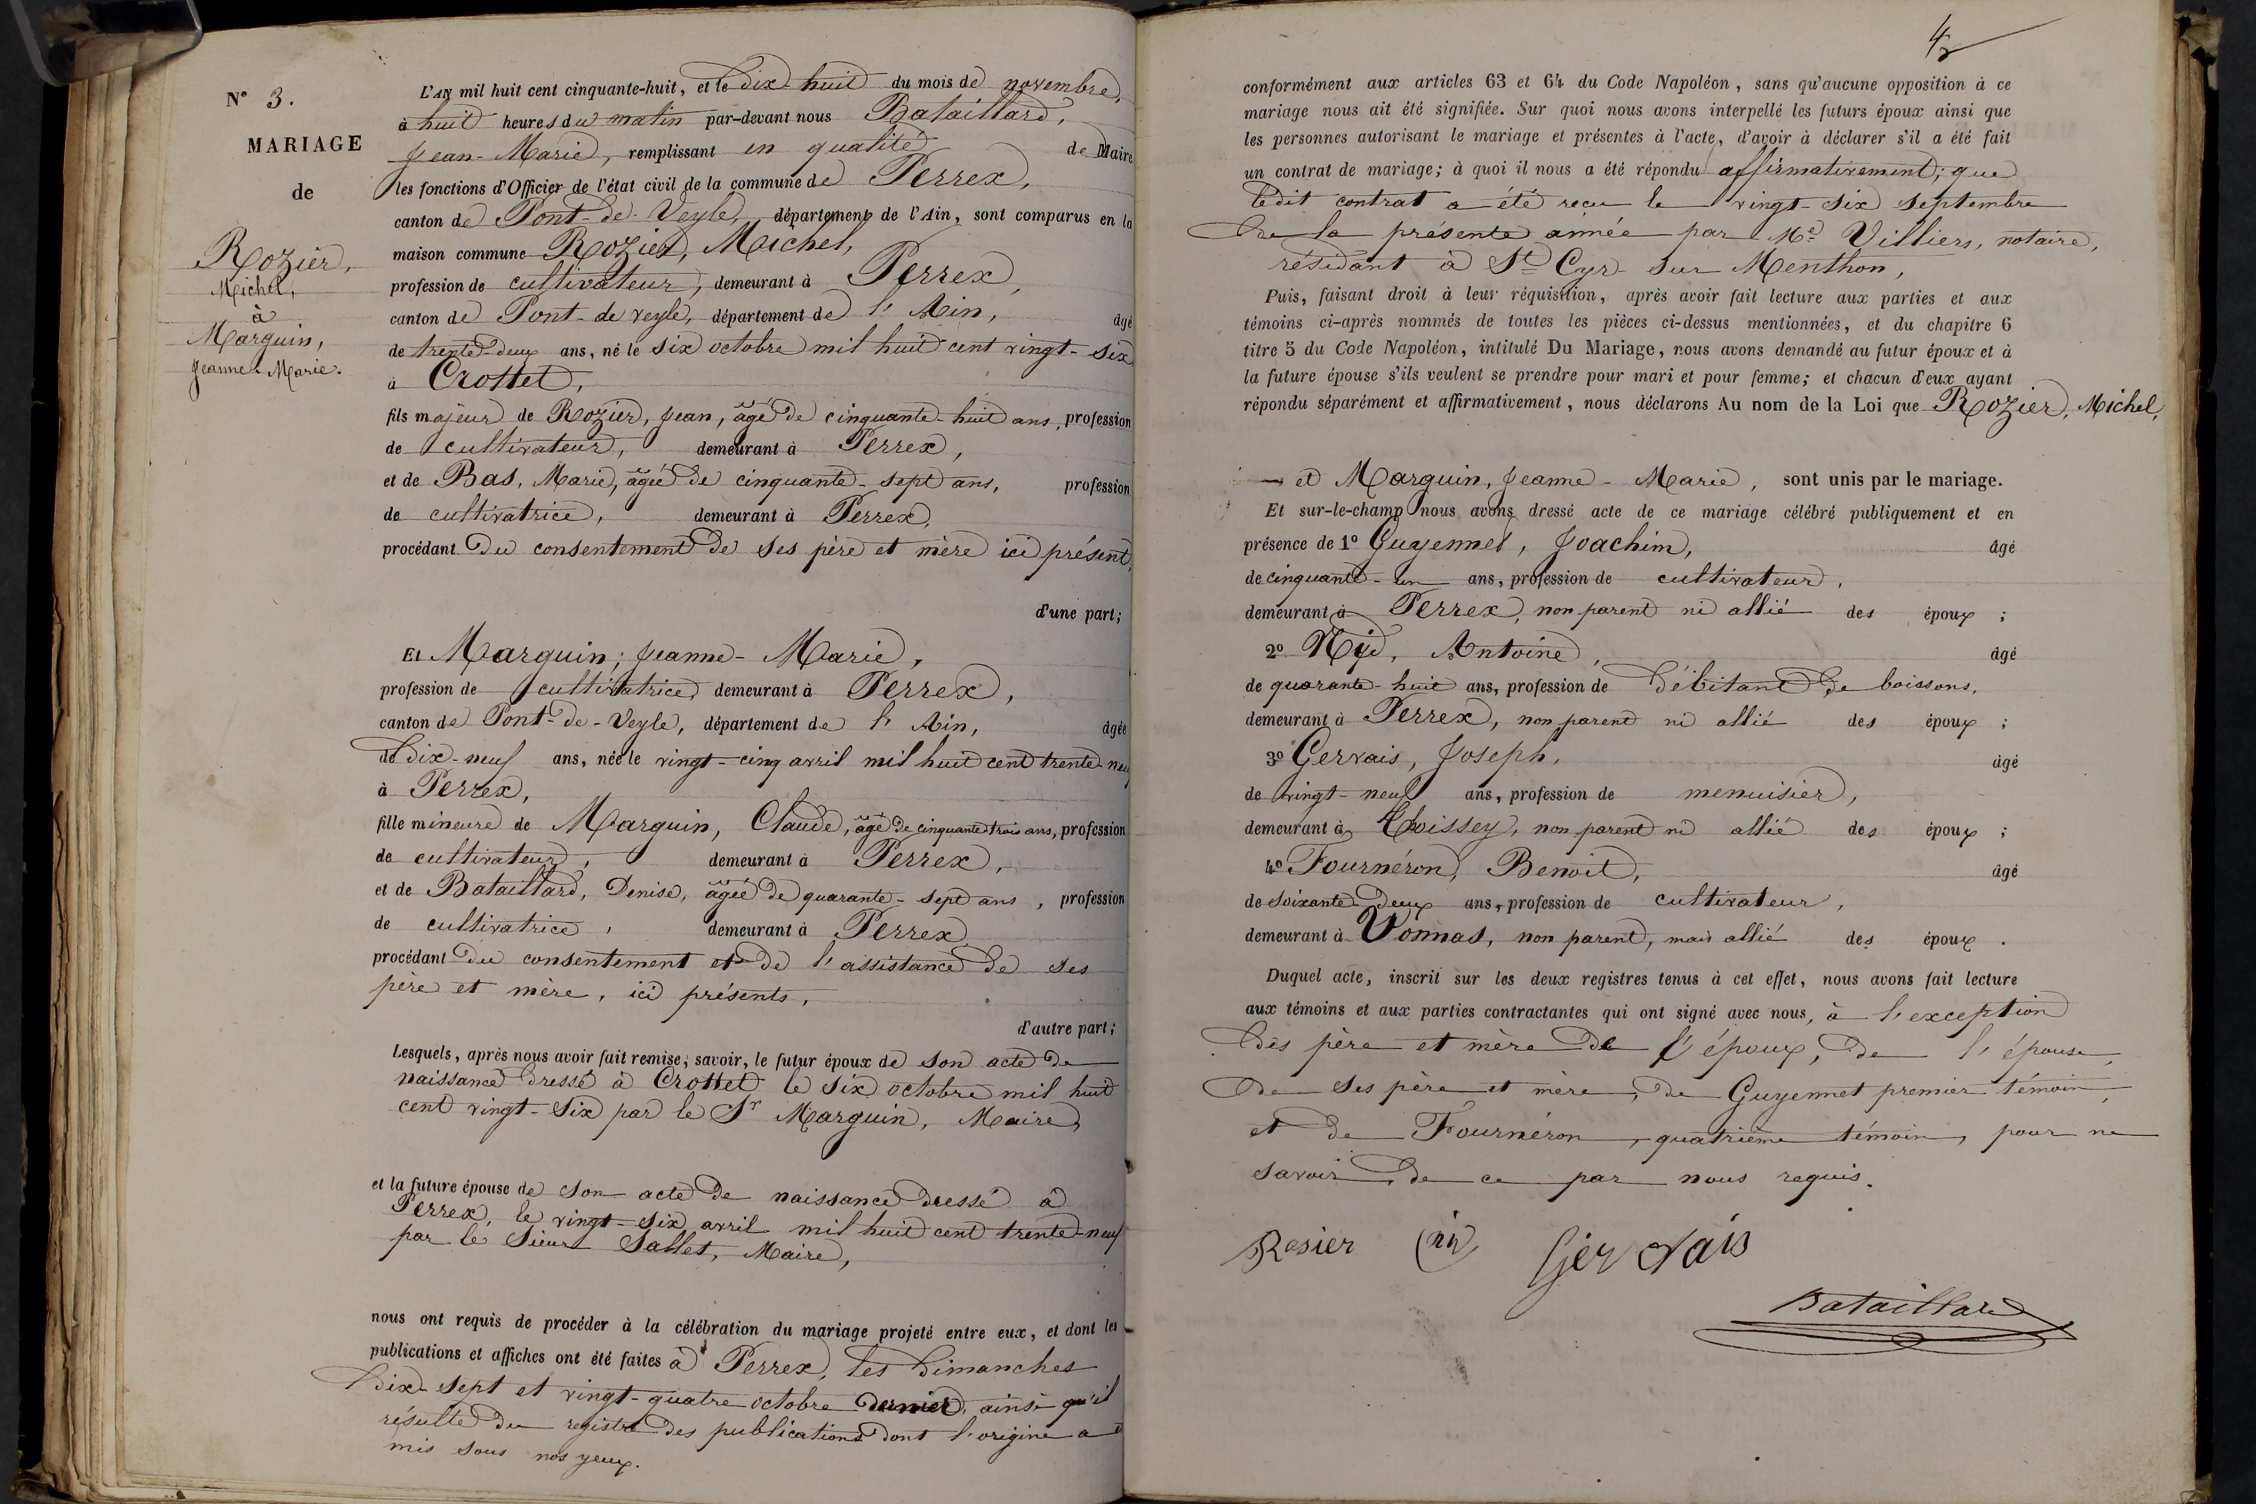 N° 3.
MARIAGE
de
Rozier,
Michel,
à
Marguin,
Jeanne-Marie.
L'AN mil huit cent cinquante-huit, et le dix-huit du mois de novembre,
à huit heures du matin par-devant nous Bataillard,
Jean-Marie, remplissant en qualité de Maire
les fonctions d'Officier de l'état civil de la commune de Perrex,
canton de Pont-de-Veyle, département de l'Ain, sont comparus en la
maison commune Rozier, Michel,
profession de cultivateur, demeurant à Perrex,
canton de Pont-de veyle, département de l'Ain, âgé
de trente-deux ans, né le six octobre mil huit cent vingt-six
à Crottet,
fils majeur de Rozier, Jean, âgé de cinquante-huit ans, profession
de cultivateur, demeurant à Perrex,
et de Bas, Marie, âgée de cinquante-sept ans, profession
de cultivatrice, demeurant à Perrex,
procédant du consentement de ses père et mère ici présent,
d'une part;
Et Marguin, Jeanne-Marie,
profession de cultivatrice, demeurant à Perrex,
canton de Pont-de-Veyle, département de l'Ain, âgée
de dix-neuf ans, née le vingt-cinq avril mil huit cent trente-neuf
à Perrex,
fille mineure de Marguin, Claude, âgé de cinquante trois ans, profession
de cultivateur, demeurant à Perrex,
et de Bataillard, Denise, âgée de quarante-sept ans, profession
de cultivatrice, demeurant à Perrex
procédant du consentement et de l'assistance de ses
père et mère, ici présents,
d'autre part;
Lesquels, après nous avoir fait remise, savoir, le futur époux de son acte de
naissance dressé à Crottet le six octobre mil huit
cent vingt-six par le Sr Marguin, Maire,
et la future épouse de son acte de naissance dressé à
Perrex, le vingt-six avril mil huit cent trente-neuf
par le Sieur Sallet, Maire,
nous ont requis de procéder à la célébration du mariage projeté entre eux, et dont les
publications et affiches ont été faites à Perrex, les dimanches
dix-sept et vingt-quatre octobre dernier, ainsi qu'il
résulte du registre des publications dont l'origine a
mis sous nos yeux.
4
conformément aux articles 63 et 64 du Code Napoléon, sans qu'aucune opposition à ce
mariage nous ait été signifiée. Sur quoi nous avons interpellé les futurs époux ainsi que
les personnes autorisant le mariage et présentes à l'acte, d'avoir à déclarer s'il a été fait
un contrat de mariage; à quoi il nous a été répondu affirmativement; que
ledit contrat a été reçu le vingt-six septembre
de la présente année par Me Villiers, notaire,
résidant à St Cyr sur Menthon,
Puis, faisant droit à leur réquisition, après avoir fait lecture aux parties et aux
témoins ci-après nommés de toutes les pièces ci-dessus mentionnées, et du chapitre 6
titre 5 du Code Napoléon, intitulé Du Mariage, nous avons demandé au futur époux et à
la future épouse s'ils veulent se prendre pour mari et pour femme; et chacun d'eux ayant
répondu séparément et affirmativement, nous déclarons Au nom de la Loi que Rozier, Michel,
et Marguin, Jeanne-Marie, sont unis par le mariage.
Et sur-le-champ nous avons dressé acte de ce mariage célébré publiquement et en
présence de 1° Guyennet, Joachim, âgé
de cinquante-un ans, profession de cultivateur,
demeurant à Perrex, non parent ni allié des époux;
2° Antoine, âgé
de quarante-huit ans, profession de débitant de boissons,
demeurant à Perrex, non parent ni allié des époux;
3° Gervais, Joseph, âgé
de vingt-neuf ans, profession de menuisier,
demeurant à Thoissey, non parent ni allié des époux;
4° Fournéron, Benoit, âgé
de soixante-deux ans, profession de cultivateur,
demeurant à Vonnas, non parent, mais allié des époux.
Duquel acte, inscrit sur les deux registres tenus à cet effet, nous avons fait lecture
aux témoins et aux parties contractantes qui ont signé avec nous, à l'exception
des père et mère de l'époux, de l'épouse,
de ses père et mère, de Guyennet premier témoin,
et de Fournéron, quatrième témoin, pour ne
savoir, de ce par nous requis.
Rosier Gervais
Bataillard